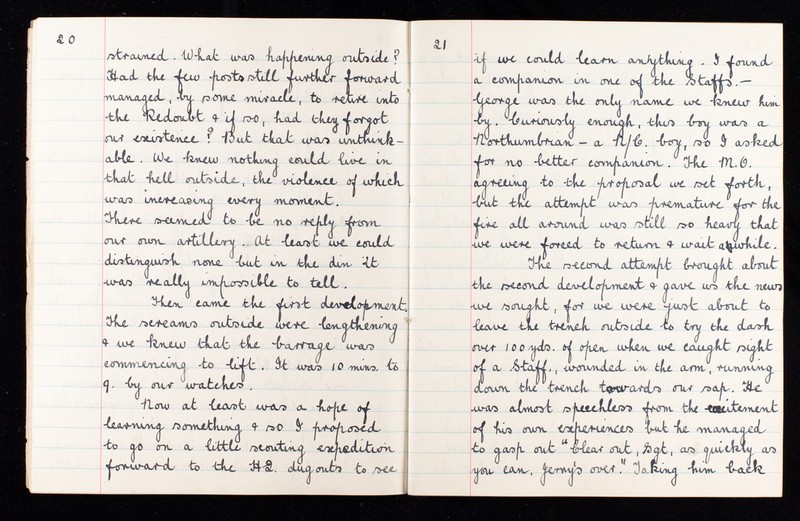 20
strained. What was happening outside?
Had the few posts still further forward
managed, by some miracle, to retire into
the Redoubt & if so, had they forgot
our existence? But that was unthink-
able. We knew nothing could live in
that hell outside, the violence of which
was increasing every moment.
There seemed to be no reply from
our own artillery. At least we could
distinguish none but in the din it
was really impossible to tell.
Then came the first development.
The screams outside were lengthening
& we knew that the barrage was
commencing to lift. It was 10 mins. to
9. by our watches.
Now at least was a hope of
learning something & so I proposed
to go on a little scouting expedition
forward to the HQ. dugouts to see
21
if we could learn anything. I found
a companion in one of the Staffs. -
George was the only name we knew him
by. Curiously enough, this boy was a
Northumbrian - a N/C. boy, so I asked
for no better companion. The M.O.
agreeing to the proposal we set forth,
but the attempt was premature for the
fire all around was still so heavy that
we were forced to return & wait awhile.
The second attempt brought about
the second development & gave us the news
we sought, for we were just about to
leave the trench outside to try the dash
over 100 yds. of open when we caught sight
of a Staff., wounded in the arm, running
down the trench towards our sap. He
was almost speechless from the excitement
of his own experiences but he managed
to gasp out "Clear out, Sgt, as quickly as
you can. Jerry's over." Taking him back